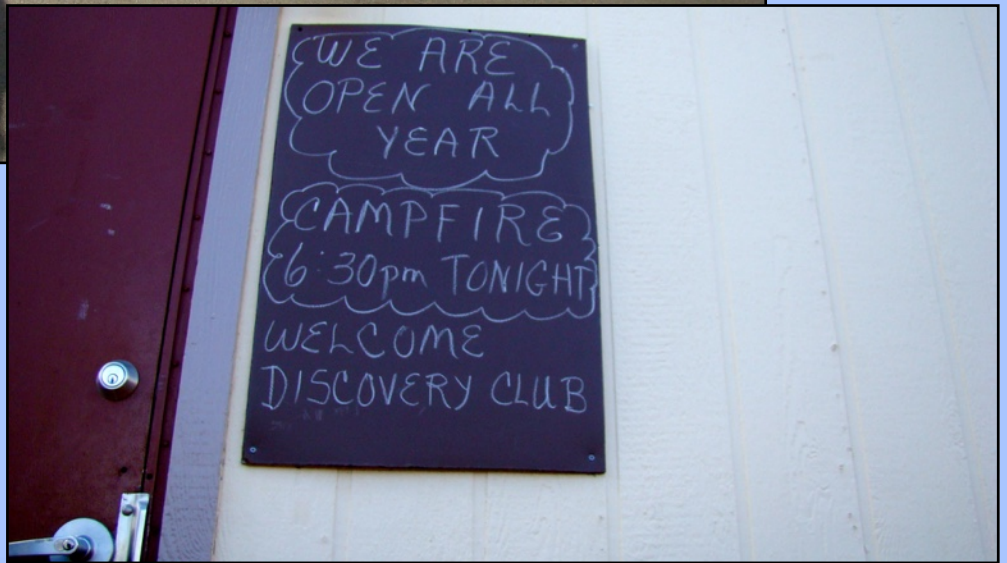 WE ARE
OPEN ALL
YEAR
CAMPFIRE
6:30pm TONIGHT
WELCOME
DISCOVERY CLUB